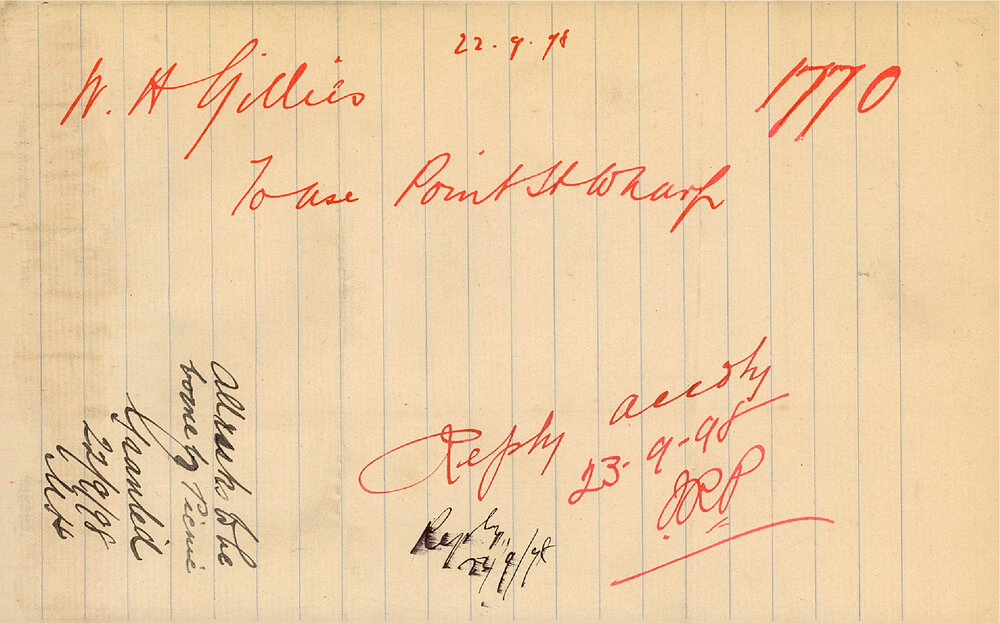 22.9.98
W. H Gillies
1770
To use Point St Wharf
Reply accdly
23-9-98
JRP
Reply
24/9/98
all risks to be
borne by Picnic
Granted
22/9/98